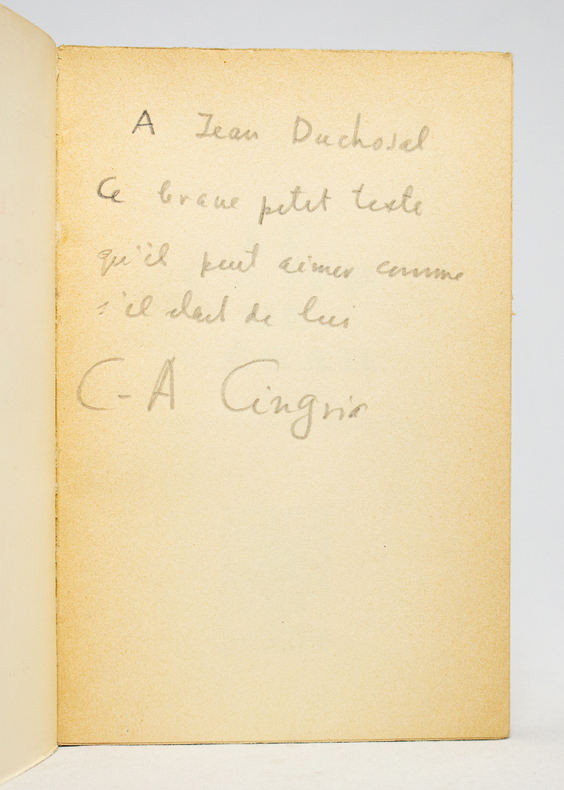 A Jean Duchosal
Ce brave petit texte
qu'il peut aimer comme
s'il était de lui
C-A Cingria